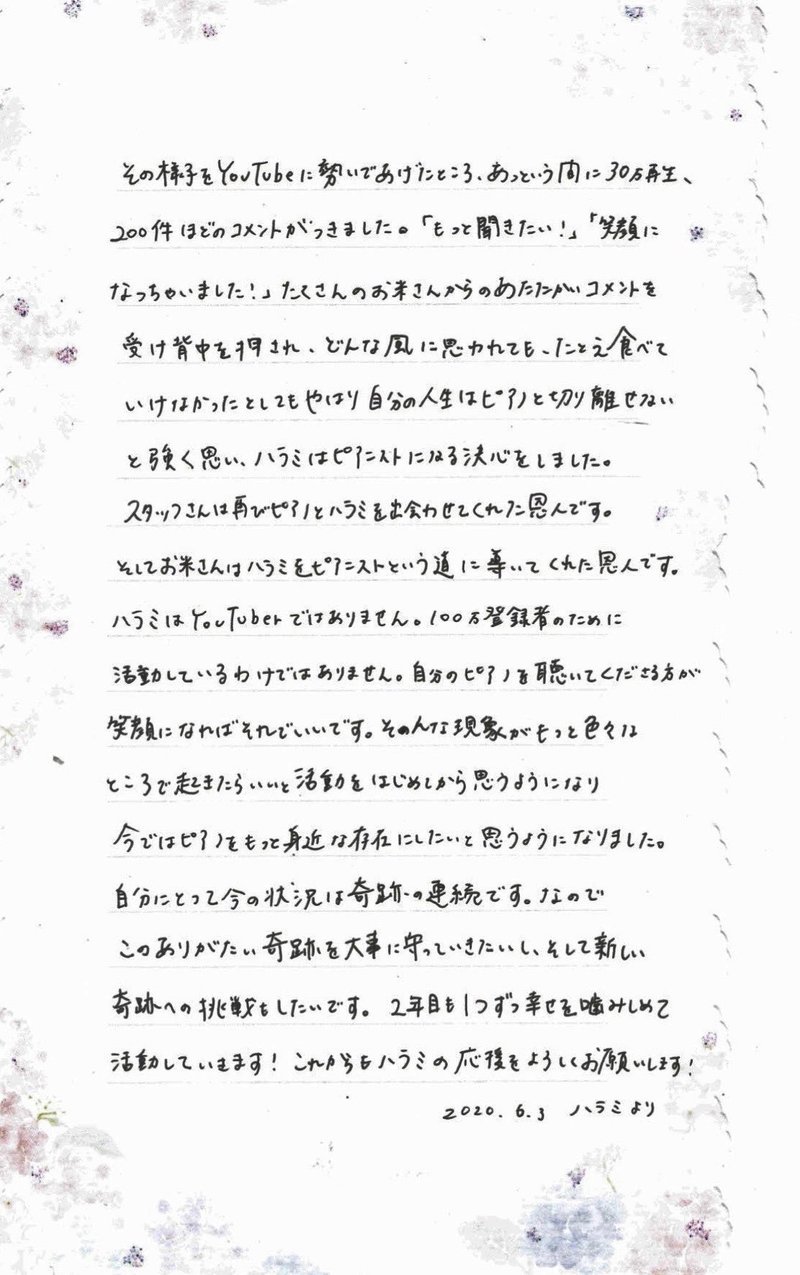 その様子をYouTubeに勢いであげたところ、あっという間に30万再生、
200件ほどのコメントがつきました。「もっと聞きたい！」「笑顔に
なっちゃいました！」たくさんのお米さんからのあたたかいコメントを
受け背中を押され、どんな風に思われても、たとえ食べて
いけなかったとしてもやはり自分の人生はピアノと切り離せない
と強く思い、ハラミはピアニストになる決心をしました。
スタッフさんは再びピアノとハラミを出会わせてくれた恩人です。
そしてお米さんはハラミをピアニストという道に導いてくれた恩人です。
ハラミはYouTuberではありません。100万登録者のために
活動しているわけではありません。自分のピアノを聴いてくださる方が
笑顔になればそれでいいです。そのんな現象がもっと色々な
ところで起きたらいいと活動をはじめてから思うようになり
今ではピアノをもっと身近な存在にしたいと思うようになりました。
自分にとって今の状況は奇跡の連続です。なので
このありがたい奇跡を大事に守っていきたいし、そして新しい
奇跡への挑戦もしたいです。2年目も1つずつ幸せを噛みしめて
活動していきます！これからもハラミの応援をよろしくお願いします！
2020.6.3 ハラミより